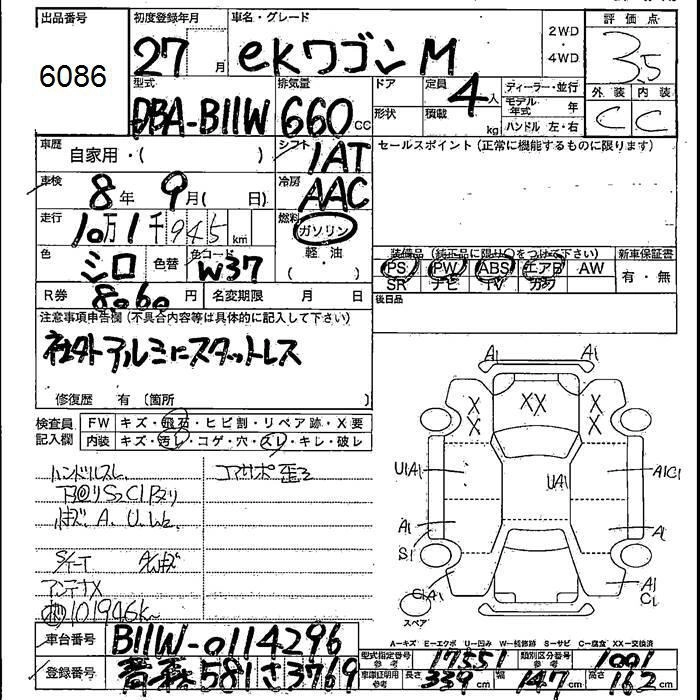 出品番号
6086
初度登録年月
27 月
車名・グレード
ekワゴン M
2WD
・
4WD
評価点
3.5
外装 内装
C C
型式
DBA-B11W
排気量
660 CC
ドア
形状
定員
4 人
積載
kg
ディーラー・並行
モデル年式 年
ハンドル 左・右
車歴
自家用・( )
シフト
IAT
セールスポイント (正常に機能するものに限ります)
車検
8年 9月( 日)
冷房
AAC
走行
10万1千945 km
燃料
ガソリン
軽・油
( )
色
シロ
色替
色コード
W37
装備品 (純正品に限り○をつけて下さい)
PS PW ABS エアB AW
SR ナビ TV カワ
新車保証書
有・無
R券
8060 円
名変期限 月 日
後日品
注意事項申告欄 (不具合内容等は具体的に記入して下さい)
社外アルミにスタットレス
修復歴 有 (箇所 )
検査員
記入欄
FW キズ・飛石・ヒビ割・リペア跡・X要
内装 キズ・汚レ・コゲ・穴・スレ・キレ・破レ
ハンドルスレ
コアサポ歪ミ
小キズ. A. U. W2.
アンテナX
101946K
A1 A1
X X XX X X
UIA1 UA1 A1C1
A1 A1
S1
C1A1 A1
C1
スペア
A-キズ E-エクボ U-凹み W-補修跡 S-サビ C-腐食 XX-交換済
車台番号
B11W-0114296
型式指定番号
参考
17551
類別区分番号
参考
1001
登録番号
青森 581 さ 3769
車庫証明用
参考
長さ 339 cm 幅 147 cm 高さ 162 cm